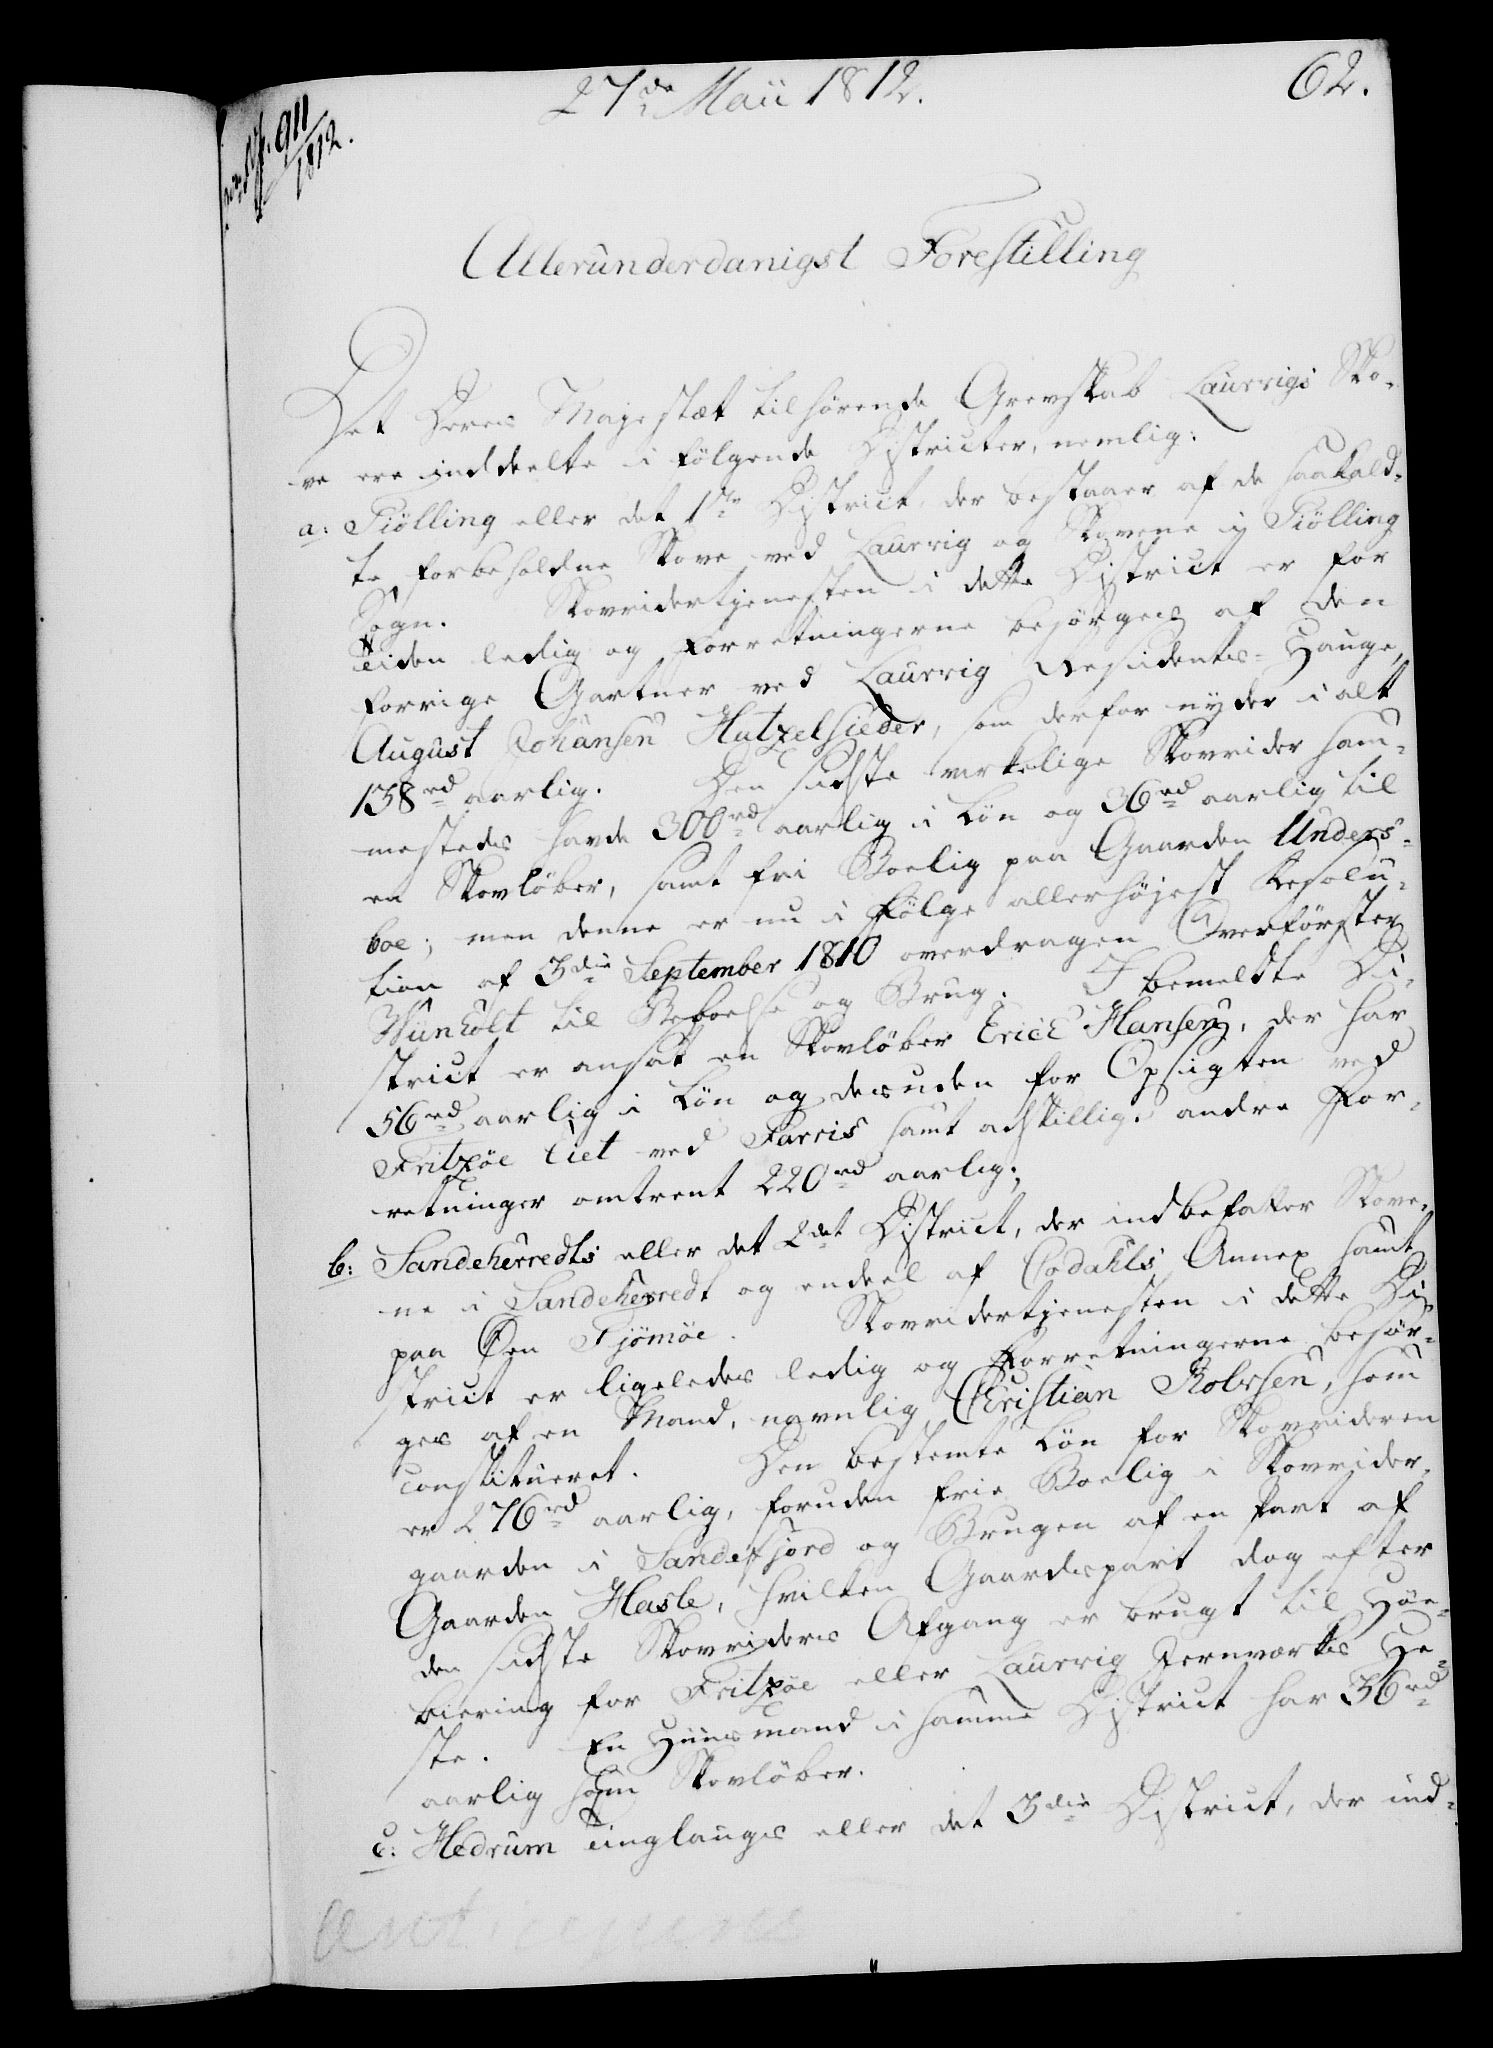 27de Maii 1812.
62.
911
1812.
Allerunderdanigst Forestilling
Det Deres Majestæt tilhørende Grevskab Laurvigs Sko-
ve ere inddeelte i følgende Districter, nemlig:
a: Tiölling eller det 1ste District der bestaaer af de saakald-
te forbeholdne Skove ved Laurvig og Skovene i Tiölling
Sogn. Skovridertjenesten i dette District er for
Tiden ledig og Forretningerne besörges af den
forrige Gartner ved Laurvig Residents-Hauge,
August Johansen Hutzelsieder, som derfor nyder i alt
138rd aarlig. Den sidste virkelige Skovrider sam-
mesteds havde 300rd aarlig i Lön og 36rd aarlig til
en Skovlöber, samt fri Boelig paa Gaarden Unders-
boe; men denne er nu i Fölge allerhöjest Resolu-
tion af 3die September 1810 overdragen Overförster
Wünholt til Beboelse og Brug. I bemeldte Di-
strict er ansat en Skovlöber Erich Hansen, der har
56rd aarlig i Lön og desuden for Opsigten ved
Fritzöe Liet ved Farris samt adskillige andre For-
retninger omtrent 220rd aarlig;
b: Sandeherredts eller det 2det District, der indbefatter Skove-
ne i Sandeherredt og endeel af Codahls Annex samt
paa Öen Tjömöe. Skovridertjenesten i dette Di-
strict er ligeledes ledig og Forretningerne besör-
ges af en Mand, navnlig Christian Rolvsen, som
constitueret. Den bestemte Lön for Skovrideren
er 276rd aarlig, foruden frie Boelig i Skovrider-
gaarden i Sandefjord og Brugen af en Part af
Gaarden Hasle, hvilken Gaardspart dog efter
den sidste Skovriders Afgang er brugt til Höe-
biering for Fritzöe eller Laurvig Jernværks He-
ste. En Huusmand i samme District har 36rd
aarlig som Skovlöber.
c: Hedrum Tinglaugs eller det 3die District, der ind-